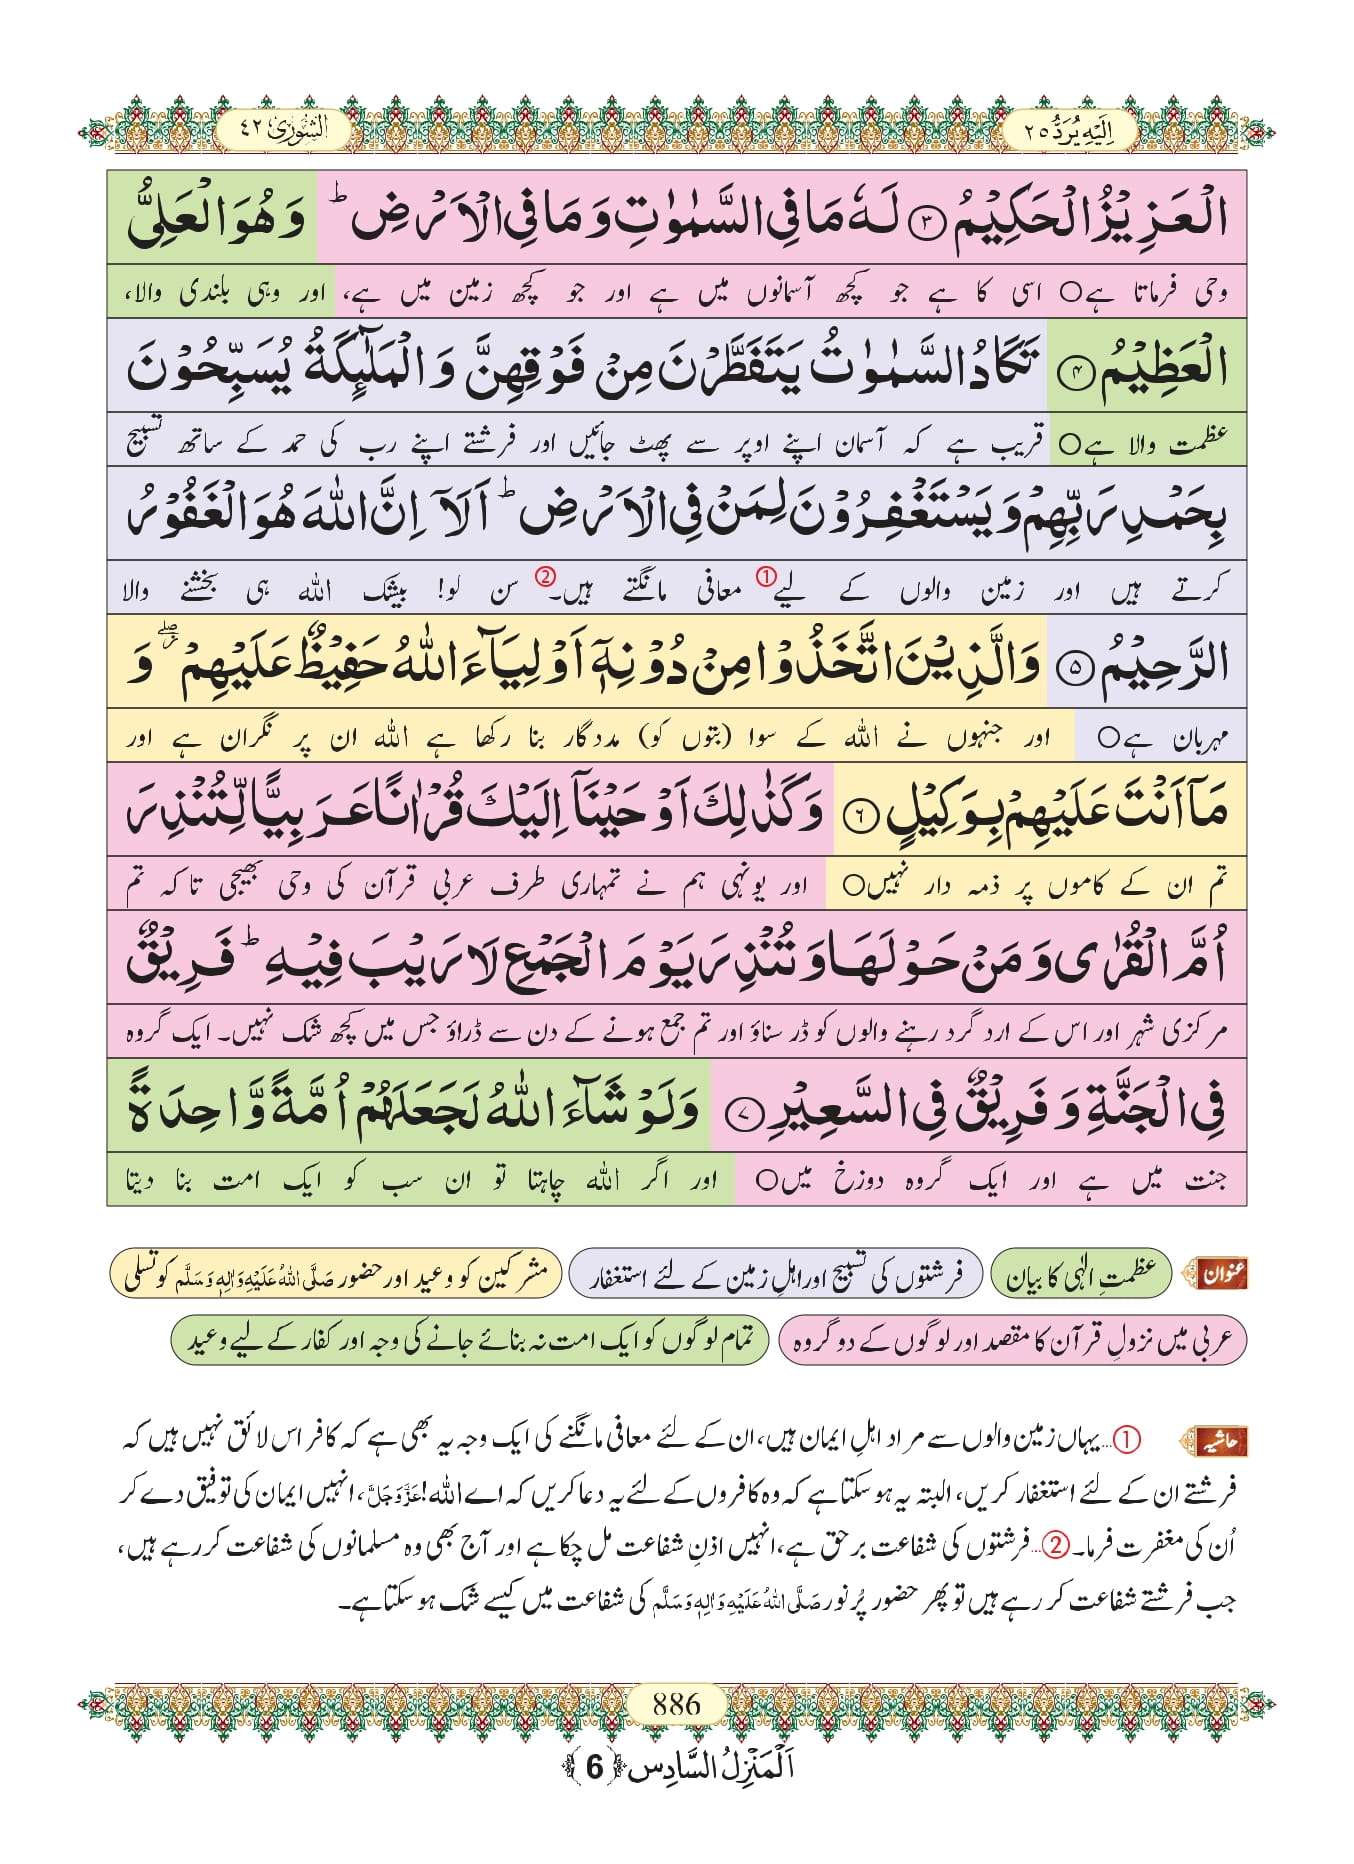 اِلَیْهِ یُرَدُّ ۲۵
الشُّوْرٰی ۴۲
الْعَزِیْزُ الْحَكِیْمُ ۝۳ لَهٗ مَا فِی السَّمٰوٰتِ وَ مَا فِی الْاَرْضِ ؕ وَ هُوَ الْعَلِیُّ
وحی فرماتا ہے○ اسی کا ہے جو کچھ آسمانوں میں ہے اور جو کچھ زمین میں ہے، اور وہی بلندی والا،
الْعَظِیْمُ ۝۴ تَكَادُ السَّمٰوٰتُ یَتَفَطَّرْنَ مِنْ فَوْقِهِنَّ وَ الْمَلٰٓىٕكَةُ یُسَبِّحُوْنَ
عظمت والا ہے○ قریب ہے کہ آسمان اپنے اوپر سے پھٹ جائیں اور فرشتے اپنے رب کی حمد کے ساتھ تسبیح
بِحَمْدِ رَبِّهِمْ وَ یَسْتَغْفِرُوْنَ لِمَنْ فِی الْاَرْضِ ؕ اَلَاۤ اِنَّ اللّٰهَ هُوَ الْغَفُوْرُ
کرتے ہیں اور زمین والوں کے لیے① معافی مانگتے ہیں۔② سن لو! بیشک اللہ ہی بخشنے والا
الرَّحِیْمُ ۝۵ وَ الَّذِیْنَ اتَّخَذُوْا مِنْ دُوْنِهٖۤ اَوْلِیَآءَ اللّٰهُ حَفِیْظٌ عَلَیْهِمْ ۖ٘ وَ
مہربان ہے○ اور جنہوں نے اللہ کے سوا (بتوں کو) مددگار بنا رکھا ہے اللہ ان پر نگران ہے اور
مَاۤ اَنْتَ عَلَیْهِمْ بِوَكِیْلٍ ۝۶ وَ كَذٰلِكَ اَوْحَیْنَاۤ اِلَیْكَ قُرْاٰنًا عَرَبِیًّا لِّتُنْذِرَ
تم ان کے کاموں پر ذمہ دار نہیں○ اور یونہی ہم نے تمہاری طرف عربی قرآن کی وحی بھیجی تاکہ تم
اُمَّ الْقُرٰى وَ مَنْ حَوْلَهَا وَ تُنْذِرَ یَوْمَ الْجَمْعِ لَا رَیْبَ فِیْهِ ؕ فَرِیْقٌ
مرکزی شہر اور اس کے ارد گرد رہنے والوں کو ڈر سناؤ اور تم جمع ہونے کے دن سے ڈراؤ جس میں کچھ شک نہیں۔ ایک گروہ
فِی الْجَنَّةِ وَ فَرِیْقٌ فِی السَّعِیْرِ ۝۷ وَ لَوْ شَآءَ اللّٰهُ لَجَعَلَهُمْ اُمَّةً وَّاحِدَةً
جنت میں ہے اور ایک گروہ دوزخ میں○ اور اگر اللہ چاہتا تو ان سب کو ایک امت بنا دیتا
عنوان عظمتِ الٰہی کا بیان فرشتوں کی تسبیح اور اہلِ زمین کے لئے استغفار مشرکین کو وعید اور حضور صَلَّی اللہُ عَلَیْہِ وَاٰلِہٖ وَسَلَّم کو تسلی
عربی میں نزولِ قرآن کا مقصد اور لوگوں کے دو گروہ تمام لوگوں کو ایک امت نہ بنائے جانے کی وجہ اور کفار کے لیے وعید
حاشیہ ①... یہاں زمین والوں سے مراد اہلِ ایمان ہیں، ان کے لئے معافی مانگنے کی ایک وجہ یہ بھی ہے کہ کافر اس لائق نہیں ہیں کہ
فرشتے ان کے لئے استغفار کریں، البتہ یہ ہو سکتا ہے کہ وہ کافروں کے لئے یہ دعا کریں کہ اے اللہ! عَزَّوَجَلَّ، انہیں ایمان کی توفیق دے کر
اُن کی مغفرت فرما۔ ②... فرشتوں کی شفاعت برحق ہے، انہیں اذنِ شفاعت مل چکا ہے اور آج بھی وہ مسلمانوں کی شفاعت کر رہے ہیں،
جب فرشتے شفاعت کر رہے ہیں تو پھر حضور پُرنور صَلَّی اللہُ عَلَیْہِ وَاٰلِہٖ وَسَلَّم کی شفاعت میں کیسے شک ہو سکتا ہے۔
886
اَلْمَنْزِلُ السَّادِس ﴿6﴾